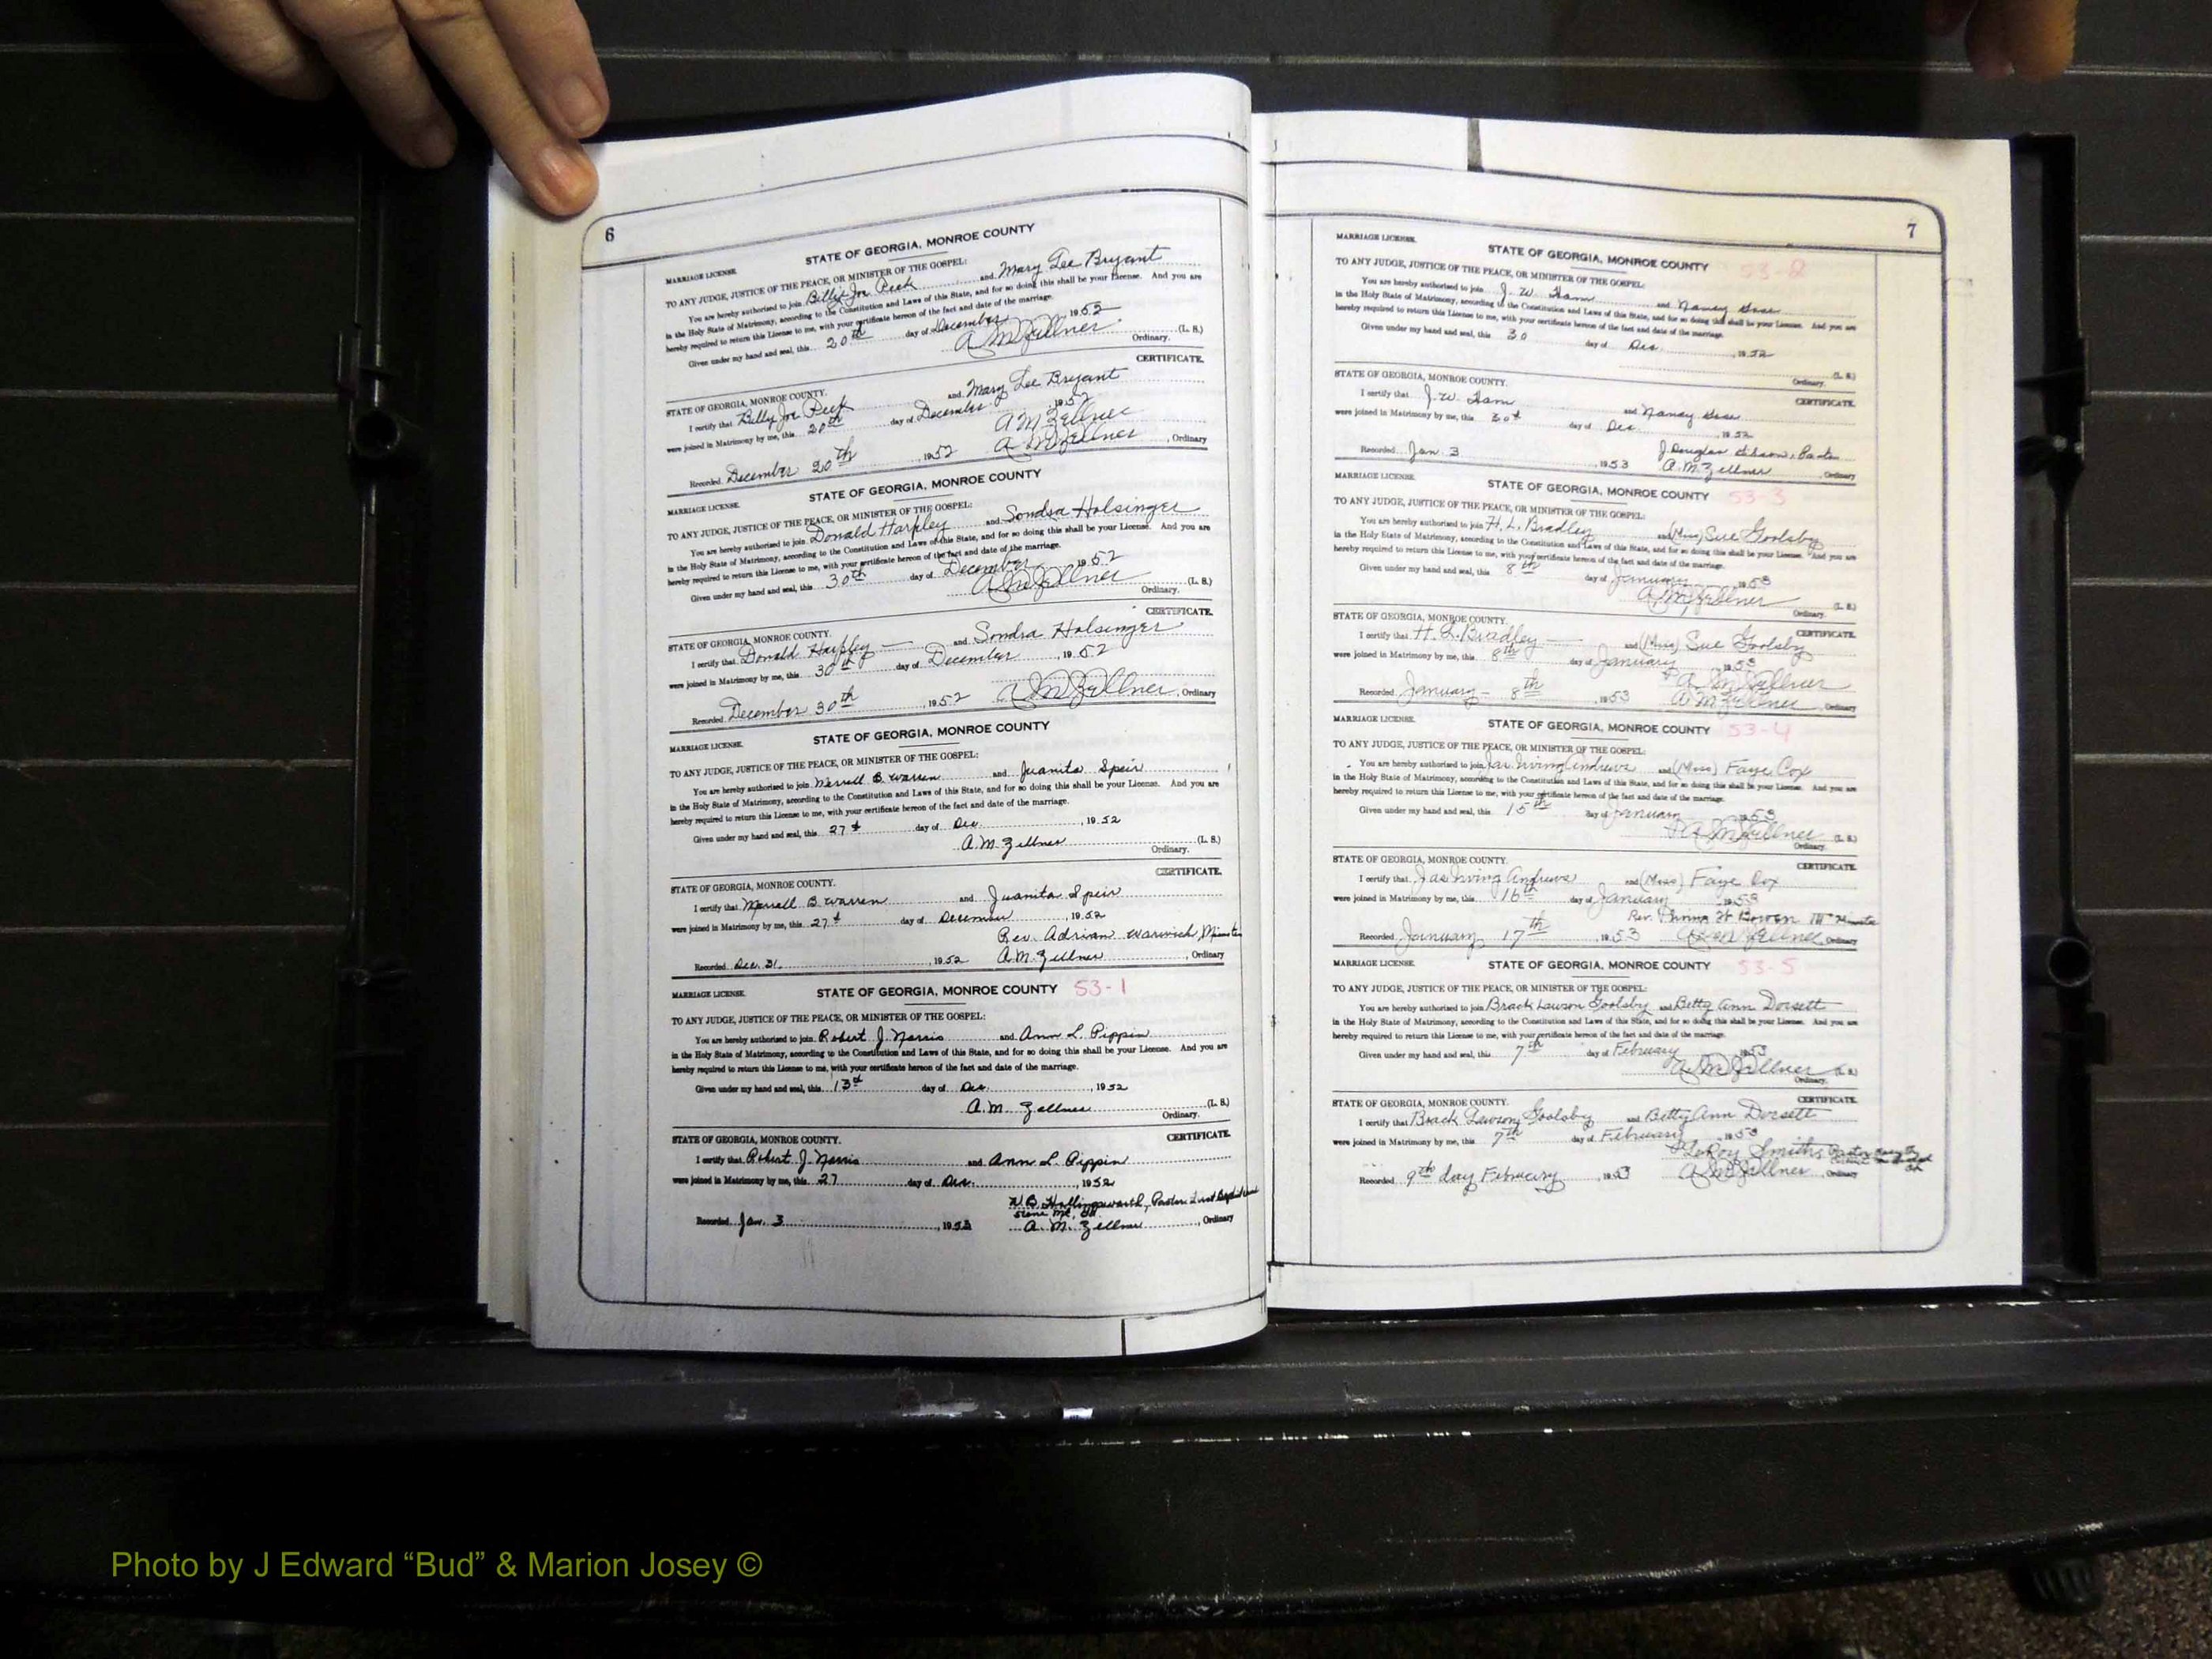 6
STATE OF GEORGIA, MONROE COUNTY
MARRIAGE LICENSE.
TO ANY JUDGE, JUSTICE OF THE PEACE, OR MINISTER OF THE GOSPEL:
You are hereby authorized to join Billy Joe Peek and Mary Lee Bryant
in the Holy State of Matrimony, according to the Constitution and Laws of this State, and for so doing this shall be your License. And you are
hereby required to return this License to me, with your certificate hereon of the fact and date of the marriage.
Given under my hand and seal, this 20th day of December, 1952
A M Zellner (L. S.)
Ordinary.
CERTIFICATE.
STATE OF GEORGIA, MONROE COUNTY.
I certify that Billy Joe Peek and Mary Lee Bryant
were joined in Matrimony by me, this 20th day of December 1952
A M Zellner
Recorded December 20th 1952 A M Zellner, Ordinary
STATE OF GEORGIA, MONROE COUNTY
MARRIAGE LICENSE.
TO ANY JUDGE, JUSTICE OF THE PEACE, OR MINISTER OF THE GOSPEL:
You are hereby authorized to join Donald Harpley and Sondra Holsinger
in the Holy State of Matrimony, according to the Constitution and Laws of this State, and for so doing this shall be your License. And you are
hereby required to return this License to me, with your certificate hereon of the fact and date of the marriage.
Given under my hand and seal, this 30th day of December 1952
A M Zellner (L. S.)
Ordinary.
CERTIFICATE.
STATE OF GEORGIA, MONROE COUNTY.
I certify that Donald Harpley and Sondra Holsinger
were joined in Matrimony by me, this 30th day of December, 1952
Recorded December 30th, 1952 A M Zellner, Ordinary
STATE OF GEORGIA, MONROE COUNTY
MARRIAGE LICENSE.
TO ANY JUDGE, JUSTICE OF THE PEACE, OR MINISTER OF THE GOSPEL:
You are hereby authorized to join Merrell B. Warren and Juanita Speir
in the Holy State of Matrimony, according to the Constitution and Laws of this State, and for so doing this shall be your License. And you are
hereby required to return this License to me, with your certificate hereon of the fact and date of the marriage.
Given under my hand and seal, this 27 day of Dec., 1952
A.M. Zellner (L. S.)
Ordinary.
CERTIFICATE.
STATE OF GEORGIA, MONROE COUNTY.
I certify that Merrell B. Warren and Juanita Speir
were joined in Matrimony by me, this 27 day of December, 1952
Rev. Adrian Warwick, Minister
Recorded Dec. 31, 1952 A.M. Zellner, Ordinary
MARRIAGE LICENSE. STATE OF GEORGIA, MONROE COUNTY 53-1
TO ANY JUDGE, JUSTICE OF THE PEACE, OR MINISTER OF THE GOSPEL:
You are hereby authorized to join Robert J. Norris and Ann L. Pippin
in the Holy State of Matrimony, according to the Constitution and Laws of this State, and for so doing this shall be your License. And you are
hereby required to return this License to me, with your certificate hereon of the fact and date of the marriage.
Given under my hand and seal, this 13 day of Dec., 1952
A.M. Zellner (L. S.)
Ordinary.
STATE OF GEORGIA, MONROE COUNTY. CERTIFICATE.
I certify that Robert J. Norris and Ann L. Pippin
were joined in Matrimony by me, this 27 day of Dec., 1952
W B. Hollingsworth, Pastor
Recorded Jan. 3, 1953 A. M. Zellner, Ordinary
7
MARRIAGE LICENSE. STATE OF GEORGIA, MONROE COUNTY 53-2
TO ANY JUDGE, JUSTICE OF THE PEACE, OR MINISTER OF THE GOSPEL:
You are hereby authorized to join J. W. Ham and Nancy
in the Holy State of Matrimony, according to the Constitution and Laws of this State, and for so doing this shall be your License. And you are
hereby required to return this License to me, with your certificate hereon of the fact and date of the marriage.
Given under my hand and seal, this 30 day of Dec., 1952
(L. S.)
Ordinary.
STATE OF GEORGIA, MONROE COUNTY. CERTIFICATE.
I certify that J. W. Ham and Nancy
were joined in Matrimony by me, this 30 day of Dec., 1952
J. Douglas Gibson, Pastor
Recorded Jan. 3, 1953 A.M. Zellner, Ordinary
MARRIAGE LICENSE. STATE OF GEORGIA, MONROE COUNTY 53-3
TO ANY JUDGE, JUSTICE OF THE PEACE, OR MINISTER OF THE GOSPEL:
You are hereby authorized to join H. L. Bradley and (Miss) Sue Goolsby
in the Holy State of Matrimony, according to the Constitution and Laws of this State, and for so doing this shall be your License. And you are
hereby required to return this License to me, with your certificate hereon of the fact and date of the marriage.
Given under my hand and seal, this 8th day of January 1953
A M Zellner (L. S.)
Ordinary.
STATE OF GEORGIA, MONROE COUNTY. CERTIFICATE.
I certify that H. L. Bradley and (Miss) Sue Goolsby
were joined in Matrimony by me, this 8th day of January 1953
A M Zellner
Recorded January 8th, 1953 A M Zellner, Ordinary
MARRIAGE LICENSE. STATE OF GEORGIA, MONROE COUNTY 53-4
TO ANY JUDGE, JUSTICE OF THE PEACE, OR MINISTER OF THE GOSPEL:
You are hereby authorized to join Jas Irving Andrews and (Miss) Faye Cox
in the Holy State of Matrimony, according to the Constitution and Laws of this State, and for so doing this shall be your License. And you are
hereby required to return this License to me, with your certificate hereon of the fact and date of the marriage.
Given under my hand and seal, this 15th day of January 1953
A M Zellner (L. S.)
Ordinary.
STATE OF GEORGIA, MONROE COUNTY. CERTIFICATE.
I certify that Jas Irving Andrews and (Miss) Faye Cox
were joined in Matrimony by me, this 16th day of January 1953
Rev. W Bowen III Minister
Recorded January 17th, 1953 A M Zellner, Ordinary
MARRIAGE LICENSE. STATE OF GEORGIA, MONROE COUNTY 53-5
TO ANY JUDGE, JUSTICE OF THE PEACE, OR MINISTER OF THE GOSPEL:
You are hereby authorized to join Brack Lawson Goolsby and Betty Ann Dorsett
in the Holy State of Matrimony, according to the Constitution and Laws of this State, and for so doing this shall be your License. And you are
hereby required to return this License to me, with your certificate hereon of the fact and date of the marriage.
Given under my hand and seal, this 7th day of February 1953
A M Zellner (L. S.)
Ordinary.
STATE OF GEORGIA, MONROE COUNTY. CERTIFICATE.
I certify that Brack Lawson Goolsby and Betty Ann Dorsett
were joined in Matrimony by me, this 7th day of February 1953
LeRoy Smith, Pastor
Recorded 9th day February, 1953 A M Zellner, Ordinary
Photo by J Edward “Bud” & Marion Josey ©